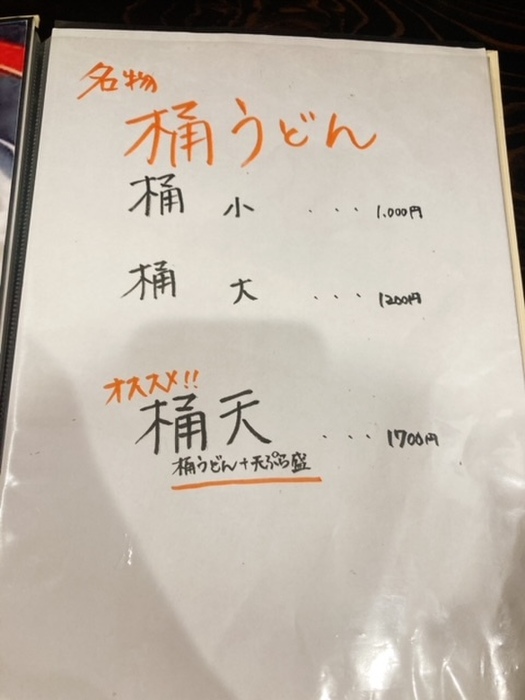 名物
桶うどん
桶 小 ... 1,000円
桶 大 ... 1200円
オススメ!!
桶天 .... 1700円
桶うどん+天ぷら盛